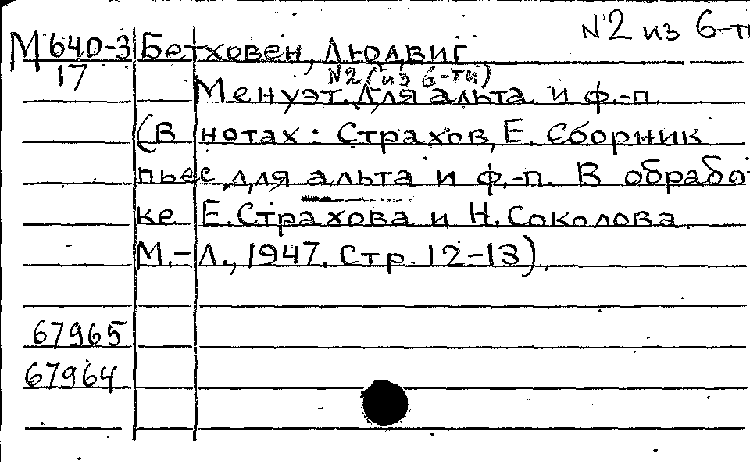 N2 из 6-ти
М 640-3 Бетховен, Людвиг
17
N2 (из 6-ти)
Менуэт. Для альта и ф.-п.
(В нотах: Страхов, Е. Сборник
пьес для альта и ф.-п. В обработ
ке Е. Страхова и Н. Соколова.
М.-Л., 1947. Стр. 12-13).
67965
67964